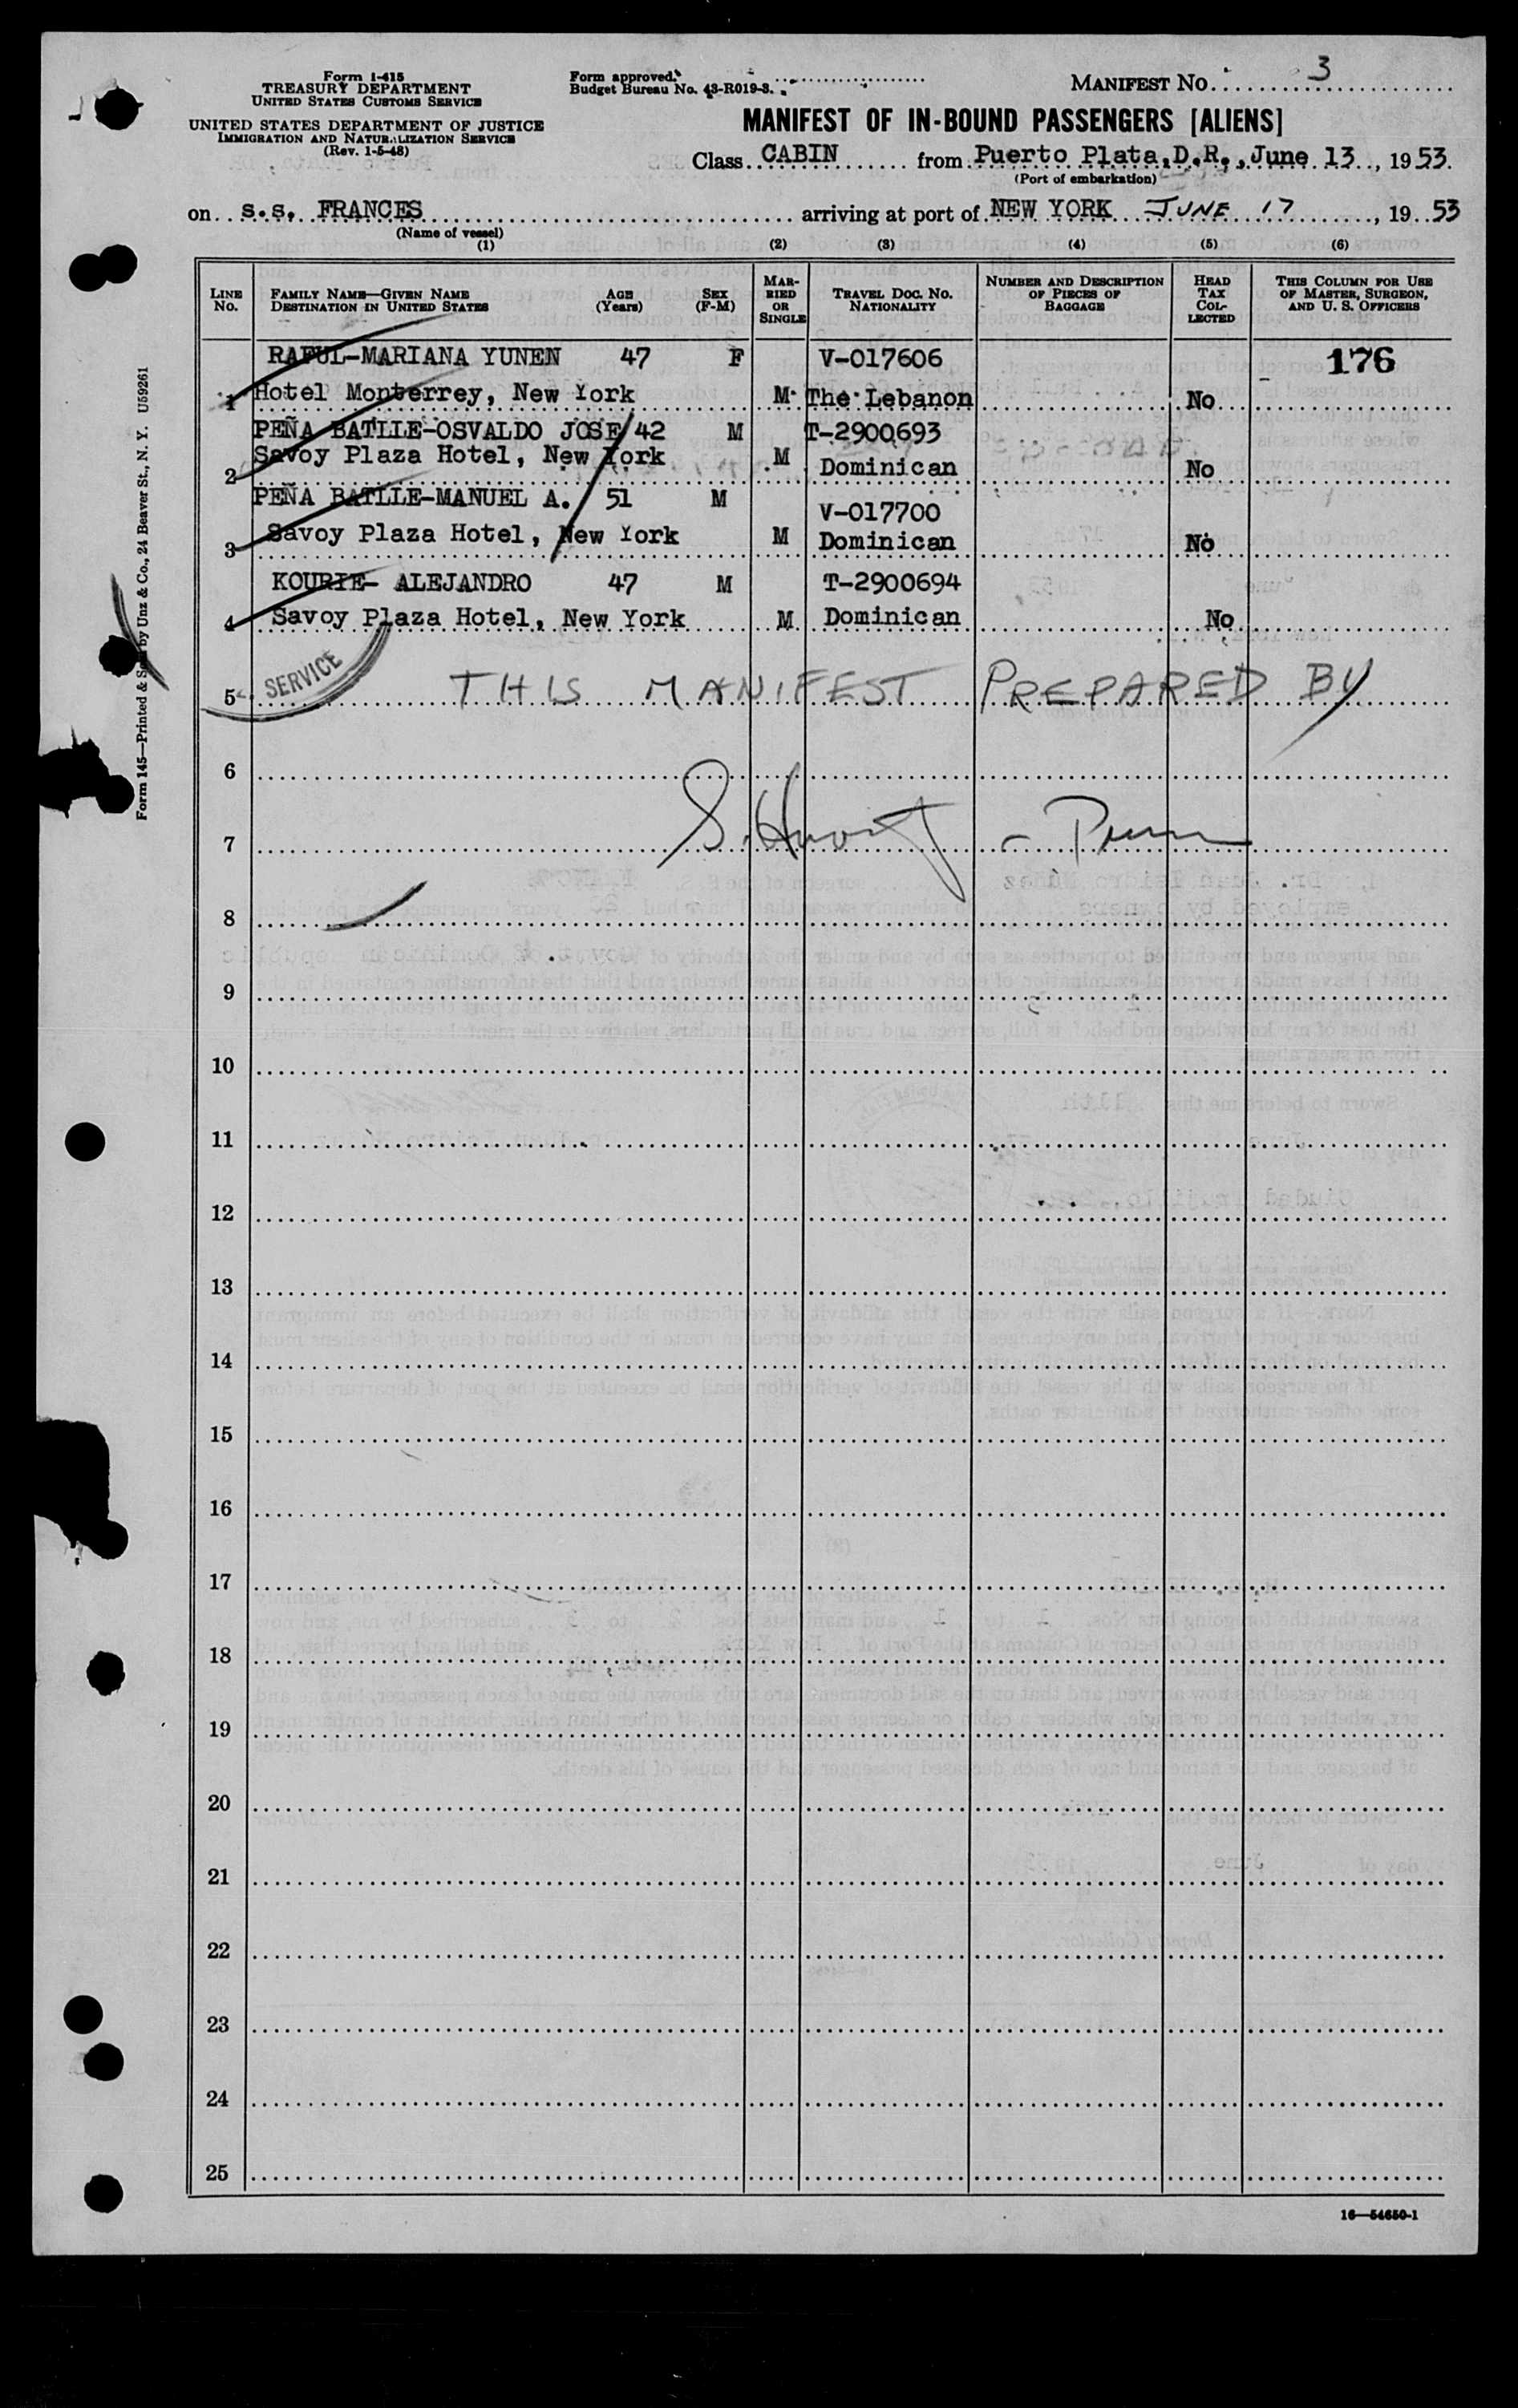 Form I-415
TREASURY DEPARTMENT
UNITED STATES CUSTOMS SERVICE
UNITED STATES DEPARTMENT OF JUSTICE
IMMIGRATION AND NATURALIZATION SERVICE
(Rev. 1-5-48)
Form approved.
Budget Bureau No. 43-R019-3.
MANIFEST No. 3
MANIFEST OF IN-BOUND PASSENGERS [ALIENS]
Class CABIN from Puerto Plata, D.R., June 13, 1953.
(Port of embarkation)
on s.s. FRANCES arriving at port of NEW YORK JUNE 17, 19 53
(Name of vessel)
(1) (2) (3) (4) (5) (6)
LINE No. FAMILY NAME—GIVEN NAME DESTINATION IN UNITED STATES AGE (Years) SEX (F-M) MARRIED OR SINGLE TRAVEL DOC. NO. NATIONALITY NUMBER AND DESCRIPTION OF PIECES OF BAGGAGE HEAD TAX COLLECTED THIS COLUMN FOR USE OF MASTER, SURGEON, AND U. S. OFFICERS
RAFUL-MARIANA YUNEN 47 F V-017606 176
1 Hotel Monterrey, New York M The Lebanon No
PEÑA BATLLE-OSVALDO JOSE 42 M T-2900693
2 Savoy Plaza Hotel, New York M Dominican No
PEÑA BATLLE-MANUEL A. 51 M V-017700
3 Savoy Plaza Hotel, New York M Dominican No
KOURIE- ALEJANDRO 47 M T-2900694
4 Savoy Plaza Hotel, New York M Dominican No
SERVICE
5 THIS MANIFEST PREPARED BY
6
7
8
9
10
11
12
13
14
15
16
17
18
19
20
21
22
23
24
25
16—54650-1
Form 145—Printed & Sold by Unz & Co., 24 Beaver St., N. Y. U59261